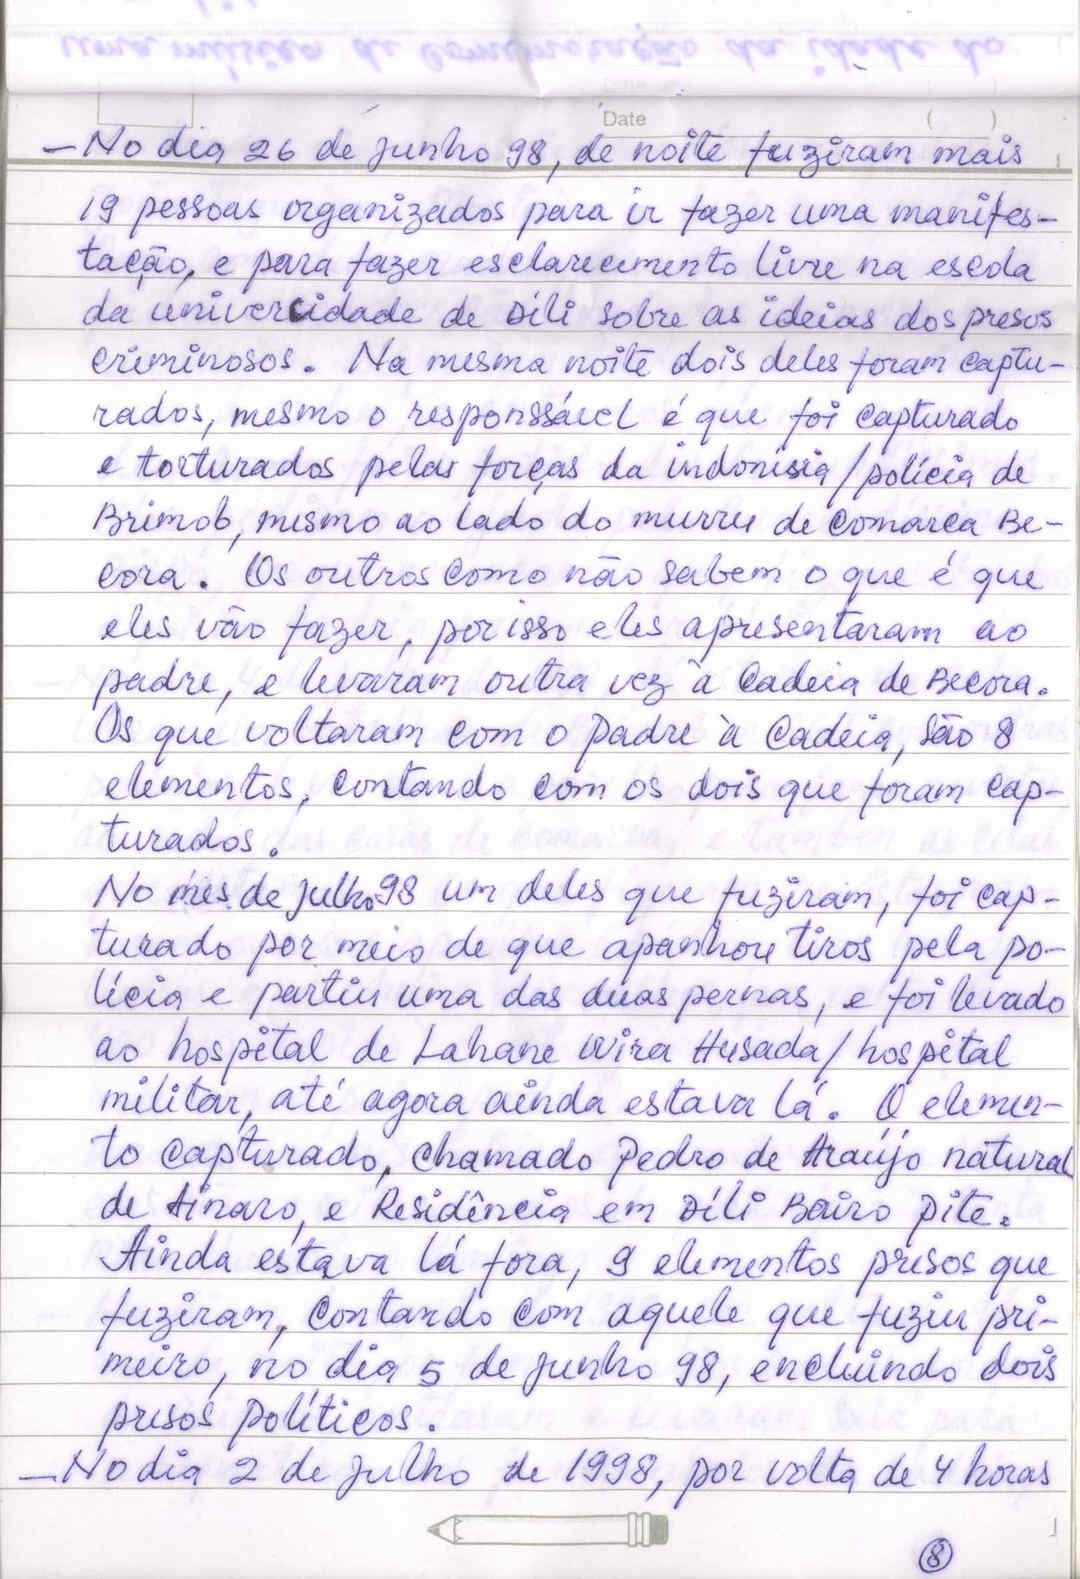 Date ( )
– No dia 26 de junho 98, de noite fuziram mais
19 pessoas organizados para ir fazer uma manifes-
tação, e para fazer esclarecimento livre na escola
da univercidade de Díli sobre as ideias dos presos
criminosos. Na mesma noite dois deles foram captu-
rados, mesmo o responssável é que foi capturado
e torturados pelas forças da indonísia/polícia de
Brimob, mesmo ao lado do murru de comarca Be-
cora. Os outros como não sabem o que é que
eles vão fazer, por isso eles apresentaram ao
padre, e levaram outra vez à Cadeia de Becora.
Os que voltaram com o padre à Cadeia, são 8
elementos, contando com os dois que foram cap-
turados.
No mês de julho 98 um deles que fuziram, foi cap-
turado por meio de que apanhou tiros pela po-
lícia e partiu uma das duas pernas, e foi levado
ao hospital de Lahane Wira Husada/hospital
militar, até agora ainda estava lá. O elemen-
to capturado, chamado Pedro de Araújo natural
de Ainaro, e Residência em Díli Bairo Pite.
Ainda estava lá fora, 9 elementos presos que
fuziram, contando com aquele que fuziu pri-
meiro, no dia 5 de junho 98, encluindo dois
presos políticos.
– No dia 2 de julho de 1998, por volta de 4 horas
8